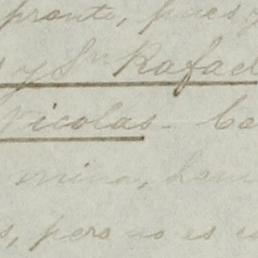 pronto, pues
y Sn Rafael
Nicolas - Ca
mina,
s, pero no es